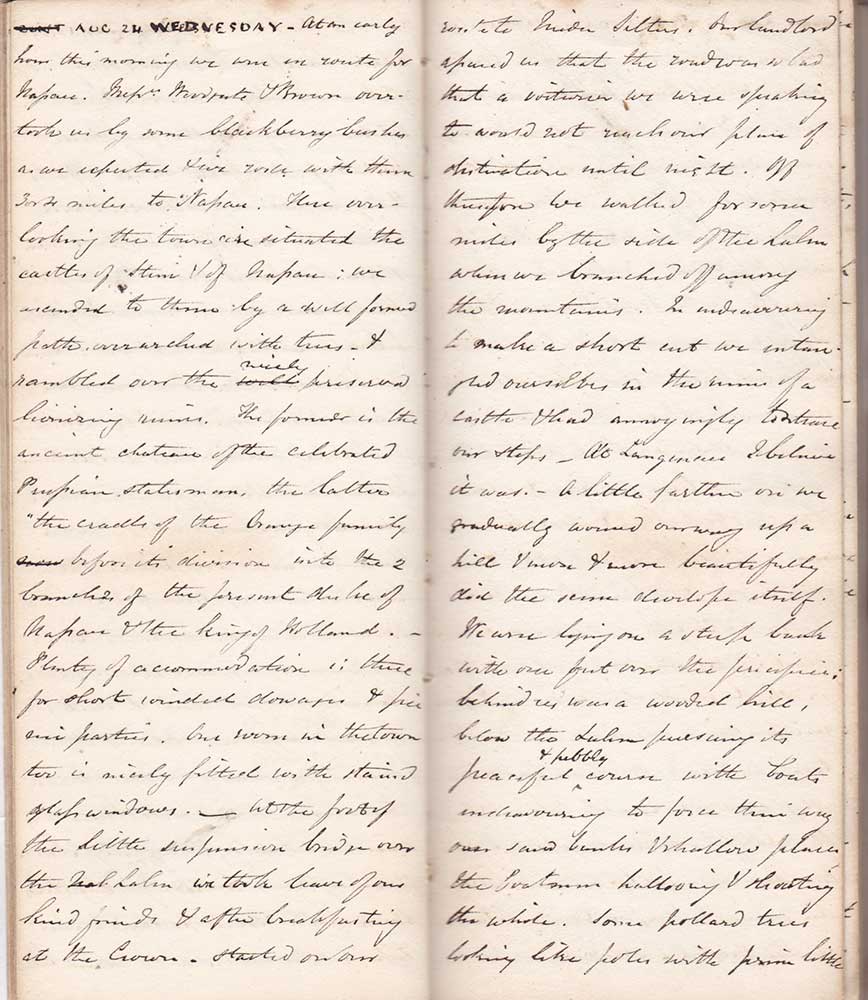 AUG 24 WEDNESDAY - At an early
hour this morning we are en route for
Nassau. Messrs & Brown over-
took us by some blackberry bushes
as we expected & we rode with them
3 or 4 miles to Nassau. Here over-
looking the town are situated the
castles of Stein & of Nassau: we
ascended to them by a well formed
path overarched with trees - &
rambled over the nicely preserved
ruins. The former is the
ancient chateau of the celebrated
Prussian statesman, the latter
"the cradle of the Orange family
before its division into the 2
branches of the present Duke of
Nassau & the King of Holland. -
Plenty of accommodation is there
for short winded dowagers & pic
nic parties. One room in the town
too is nicely fitted with stained
glass windows. - At the foot of
the little suspension bridge over
the Lahn we took leave of our
kind friends & after breakfasting
at the Crown - started on our
route to Nieder Selters. Our landlord
us that the road was so bad
that a voiturier we were speaking
to would not reach our place of
destination until night. Off
therefore we walked for some
miles by the side of the Lahn
when we branched off among
the mountains. In endeavouring
to make a short cut we entan-
gled ourselves in the ruins of a
castle & had annoyingly to retrace
our steps - At I believe
it was. - A little farther on we
gradually wound our way up a
hill & more & more beautifully
did the scene develope itself.
We are lying on a steep bank
with one foot over the precipice:
behind us was a wooded hill,
below the Lahn pursuing its
peaceful & pebbly course with boats
endeavouring to force their way
over sand banks & shallow places
the boatmen hallooing & shouting
the whole. Some pollard trees
looking like poles with little